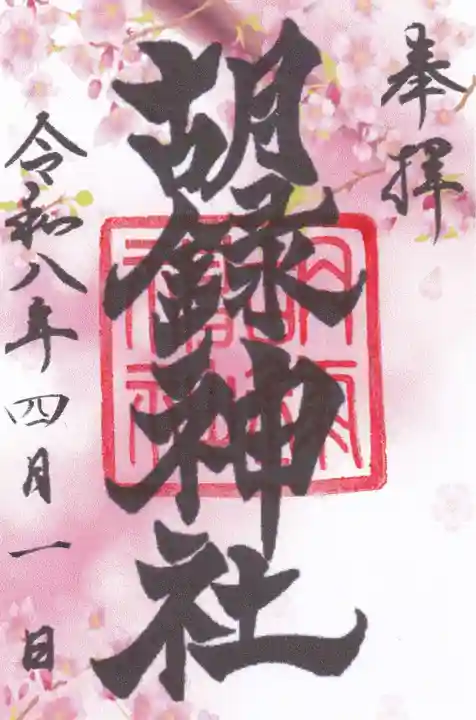 奉拝
胡録神社
令和八年四月一日